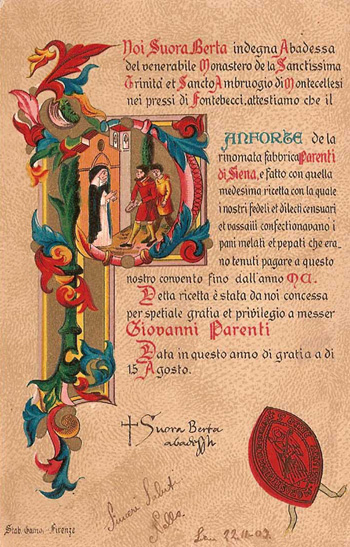 Noi Suora Berta indegna Abadessa
del venerabile Monastero de la Sanctissima
Trinita' et Sancto Ambruogio di Montecellesi
nei pressi di Fontebecci, attestiamo che il
PANFORTE de la
rinomata fabbrica Parenti
di Siena, e fatto con quella
medesima ricetta con la quale
i nostri fedeli et dilecti censuari
et vassalli confectionavano i
pani melati et pepati che era-
no tenuti pagare a questo
nostro convento fino dall'anno MC.
Detta ricetta è stata da noi concessa
per spetiale gratia et privilegio a messer
Giovanni Parenti
Data in questo anno di gratia a di
15 Agosto.
Suora Berta
abadessa
Sinceri Saluti
Stab. Gamo. - Firenze